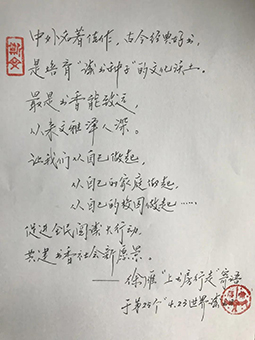 中外名著佳作，古今经典好书，
是培育“读书种子”的文化沃土。
最是书香能致远，
从来文雅泽人深。
让我们从自己做起，
从自己的家庭做起，
从自己的校园做起……
促进全民阅读大行动，
共建书香社会新愿景。
——徐雁“上书房行走”寄语
于第25个“4.23世界